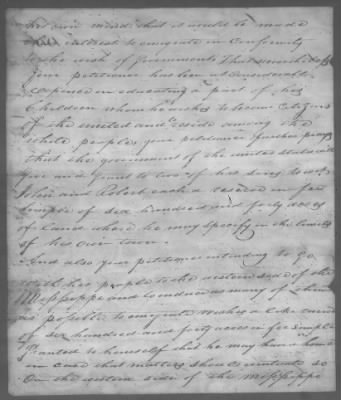 his own mind that it would be made
interest to emigrate in Conformity
to the wish of government That since that
your petitioner has been at Considerable
expence in educating a part of his
Children whom he wishes to become Citizens
of the united and reside among the
white people, your petitioner further prays
that the government of the united states will
give and grant to two of his sons to wit
John and Robert each a reserve in fee
simple of six hundred and forty acres
of land where he may specify in the limits
of his own town.
And also your petitioner intending to go
with his people to the western side of the
Mississippe and to induce as many of them
as possible to emigrate wishes a like
of six hundred and forty acres in fee simple
Granted to himself that he may have a home
in case that matters should so
On the western side of the Mississippe